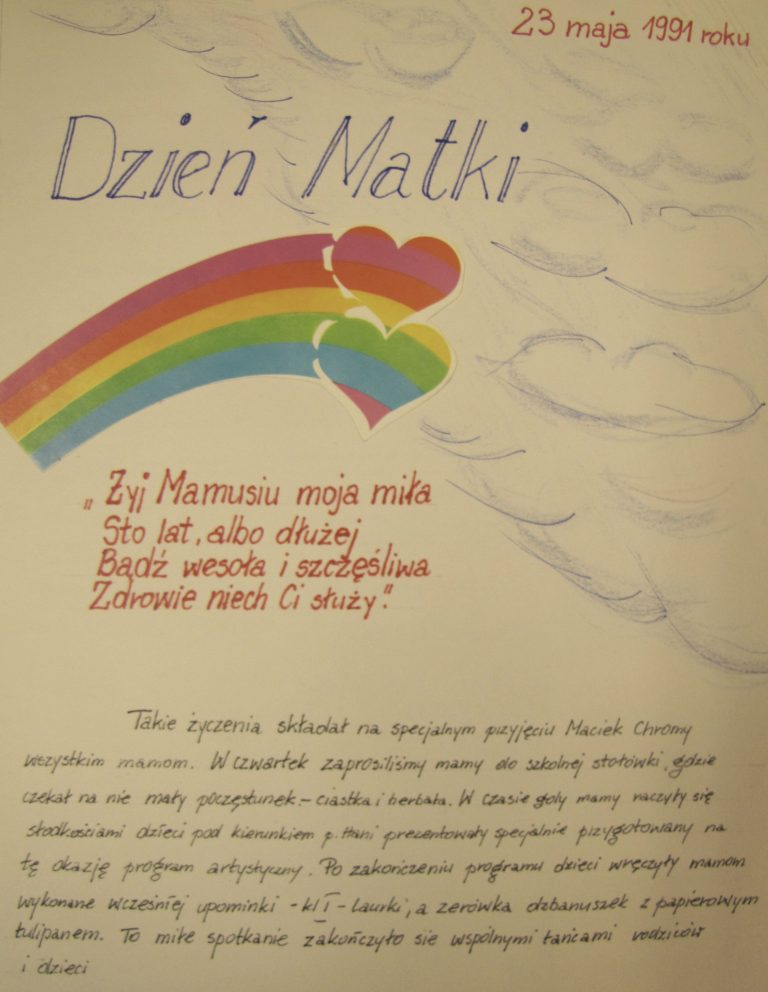 23 maja 1991 roku
Dzień Matki
„Żyj Mamusiu moja miła
Sto lat, albo dłużej
Bądź wesoła i szczęśliwa
Zdrowie niech Ci służy."
Takie życzenia składał na specjalnym przyjęciu Maciek Chromy
wszystkim mamom. W czwartek zaprosiliśmy mamy do szkolnej stołówki, gdzie
czekał na nie mały poczęstunek - ciastka i herbata. W czasie gdy mamy raczyły się
słodkościami dzieci pod kierunkiem p. Hani prezentowały specjalnie przygotowany na
tę okazję program artystyczny. Po zakończeniu programu dzieci wręczyły mamom
wykonane wcześniej upominki - kl I - Laurki, a zerówka dzbanuszek z papierowym
tulipanem. To miłe spotkanie zakończyło sie wspólnymi tańcami rodziców
i dzieci